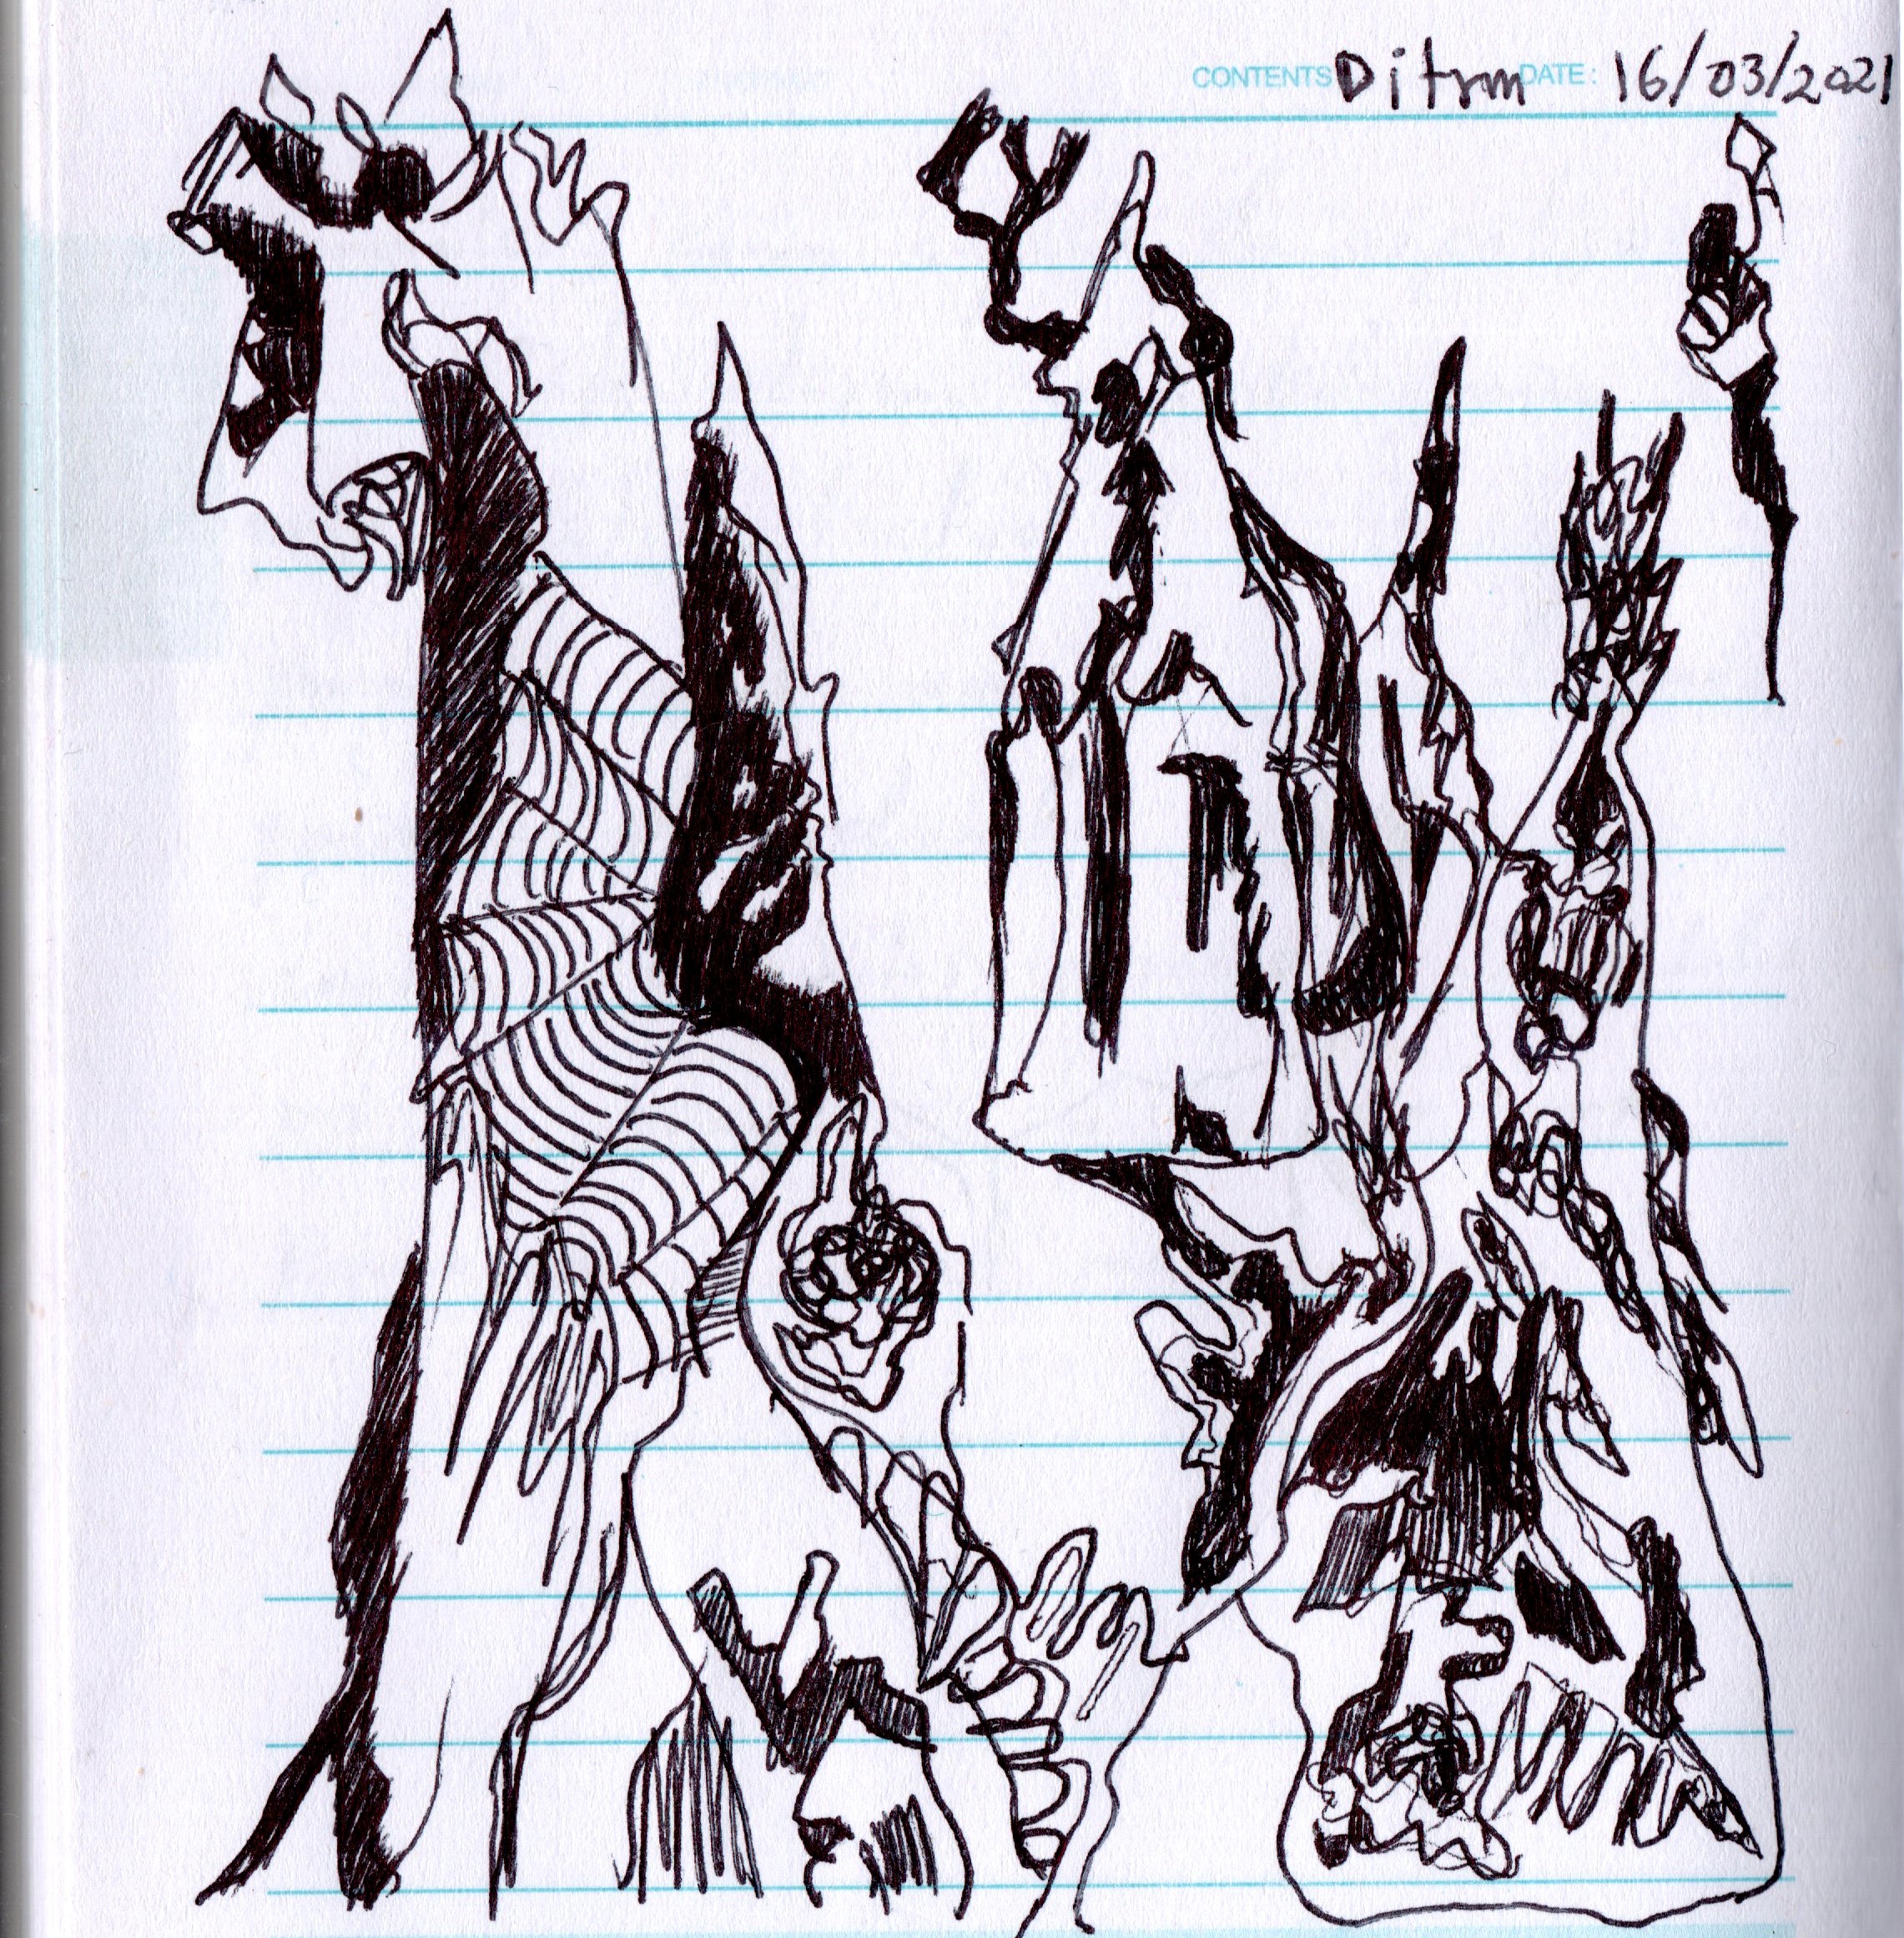 CONTENTS Ditrm DATE: 16/03/2021